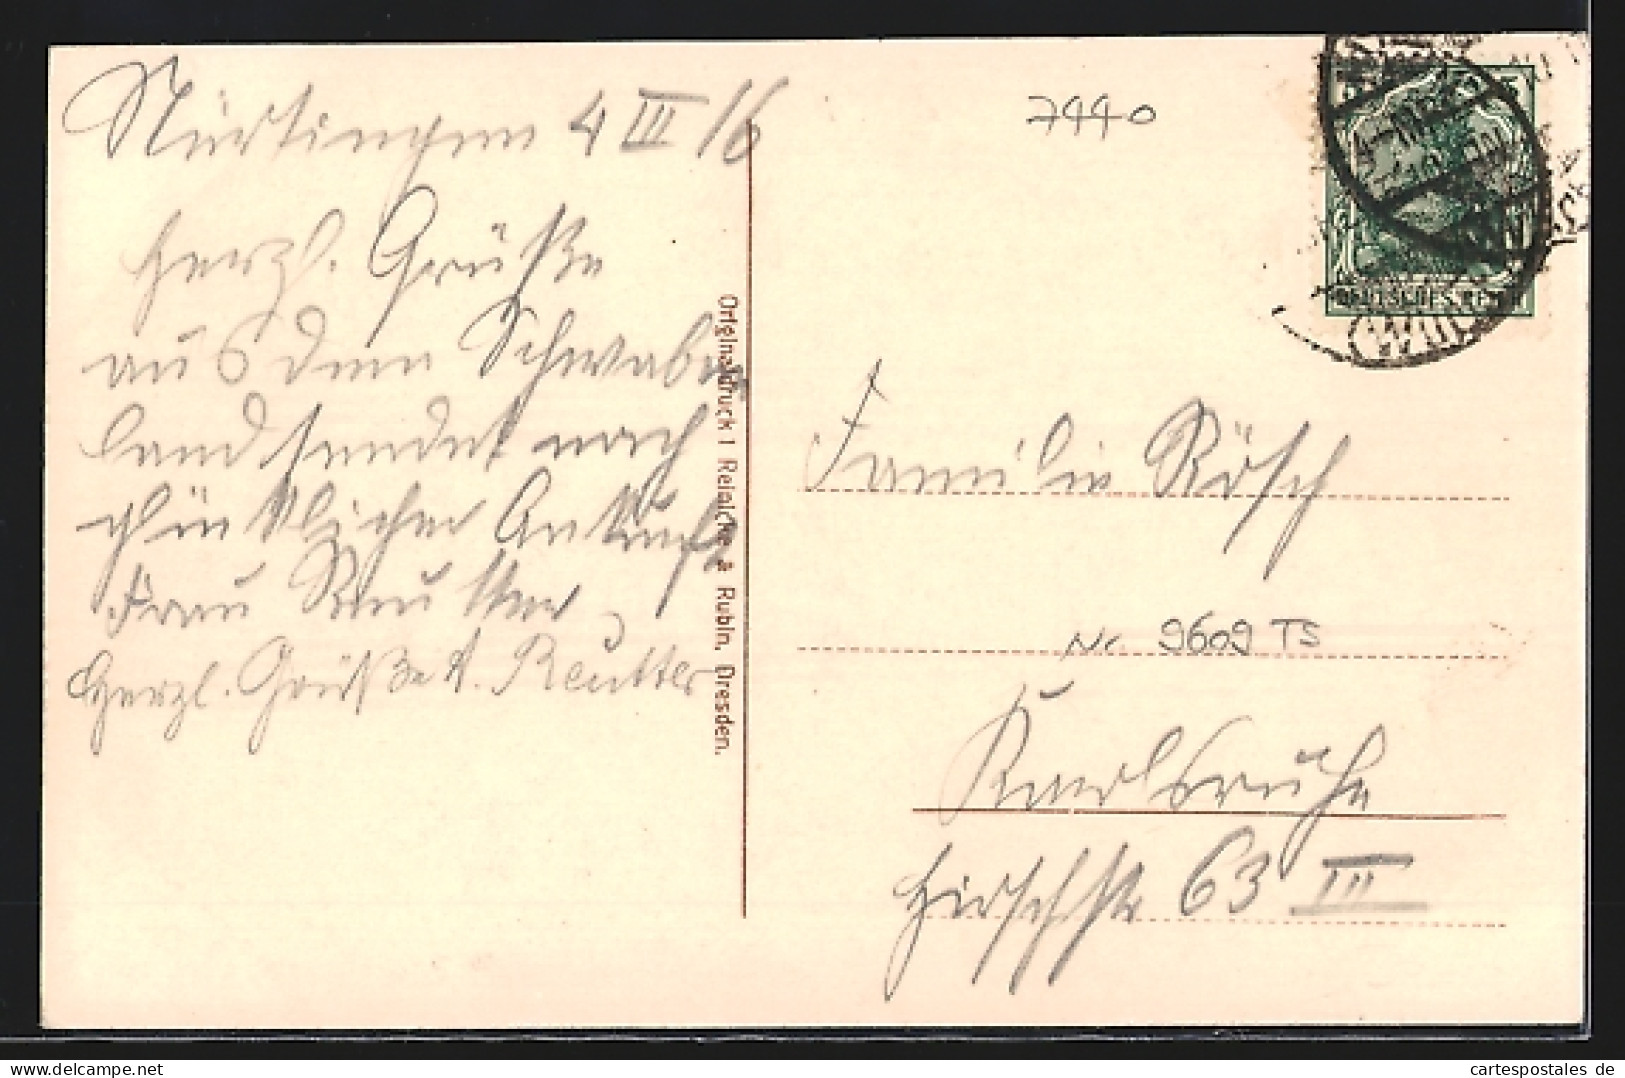 Nürtingen 4 III 16
Herzl. Grüße
aus dem Schwaben
land sendet nach
glücklicher Ankunft
Frau Reutter,
Herzl. Grüße A. Reutter
Originaldruck v. Reinicke & Rubin, Dresden.
7440
DEUTSCHES REICH
Familie Rösch
Nr. 9609 TS
Karlsruhe
Hirschstr 63 III
cartespostales de